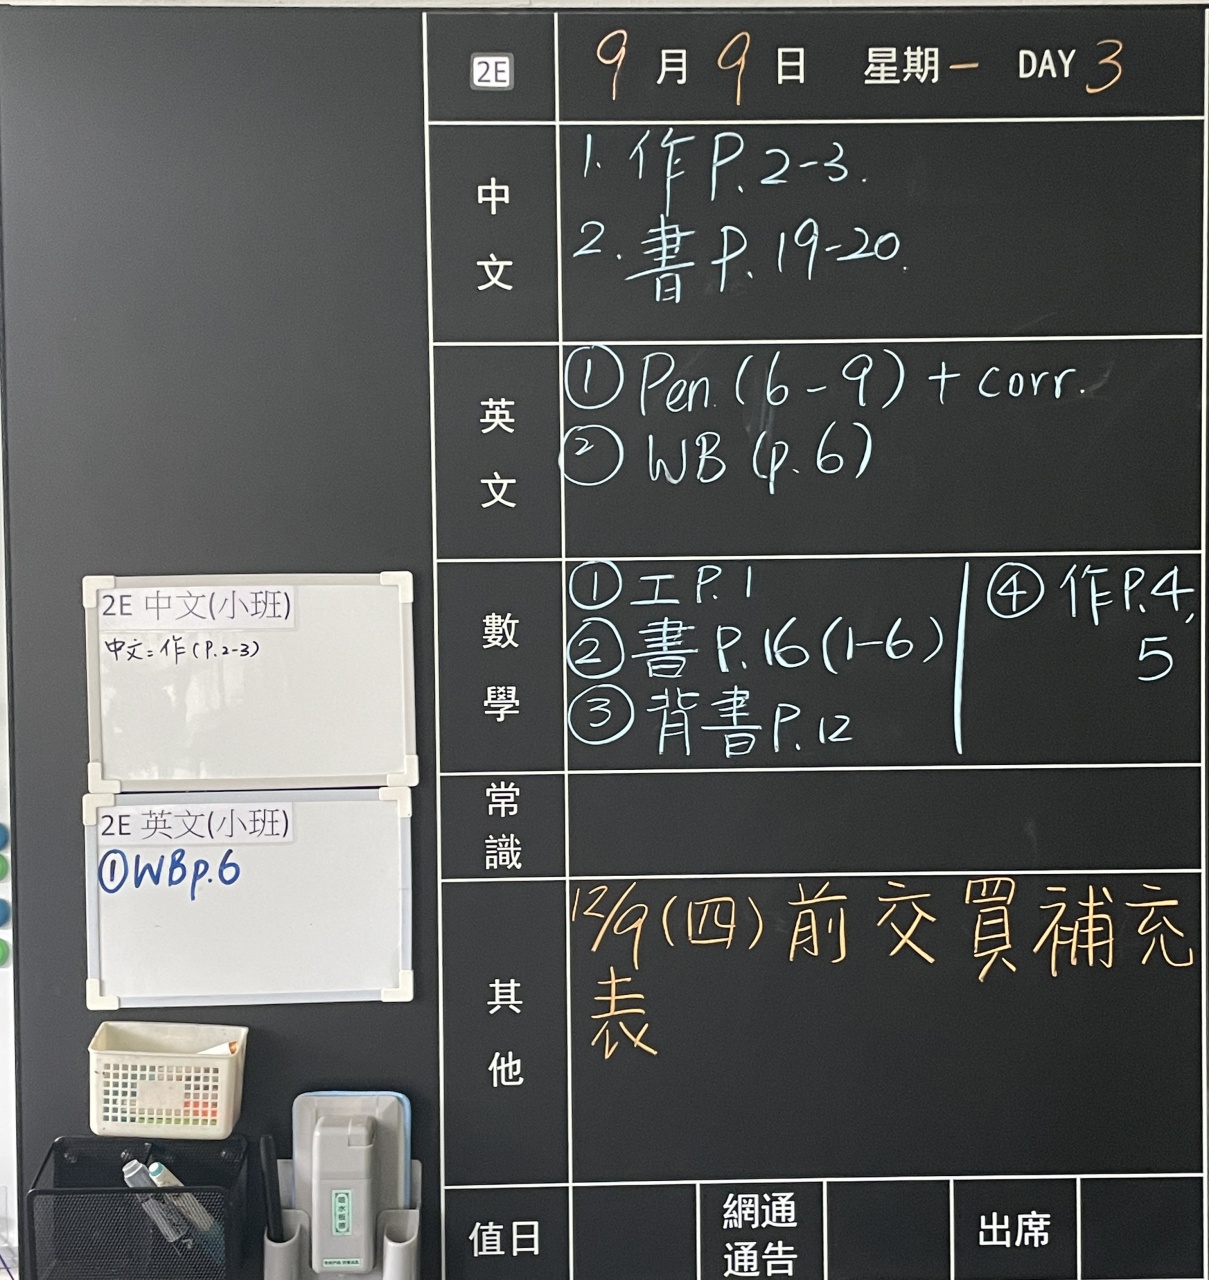 2E
9月9日 星期一 DAY 3
中文
1. 作P.2-3.
2. 書P.19-20.
英文
① Pen.(6-9)+corr.
② WB (p.6)
數學
① 工P.1
② 書P.16(1-6)
③ 背書P.12
④ 作P.4,
5
常識
其他
12/9(四)前交買補充
表
值日
網通
通告
出席
2E 中文(小班)
中文:作(P.2-3)
2E 英文(小班)
①WBp.6